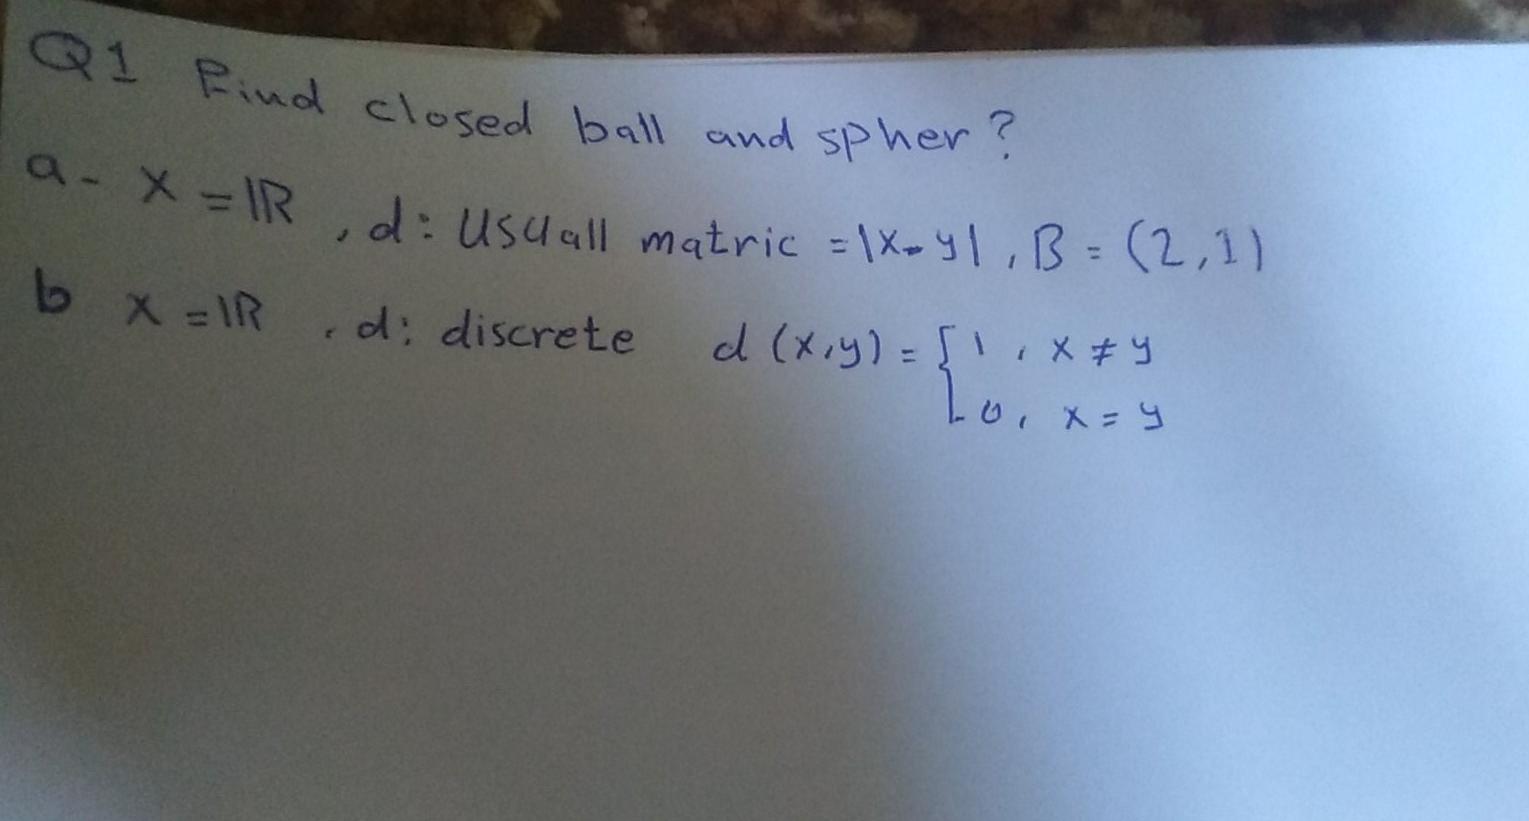 Q1 Find closed ball and spher?
a- X = ℝ , d: Usuall matric = |x-y| , B = (2,1)
b X = ℝ , d: discrete d(x,y) = { 1 , x ≠ y
0 , x = y